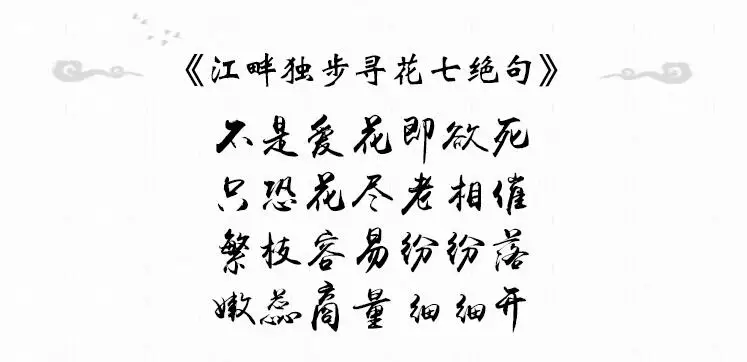 《江畔独步寻花七绝句》
不是爱花即欲死
只恐花尽老相催
繁枝容易纷纷落
嫩蕊商量细细开